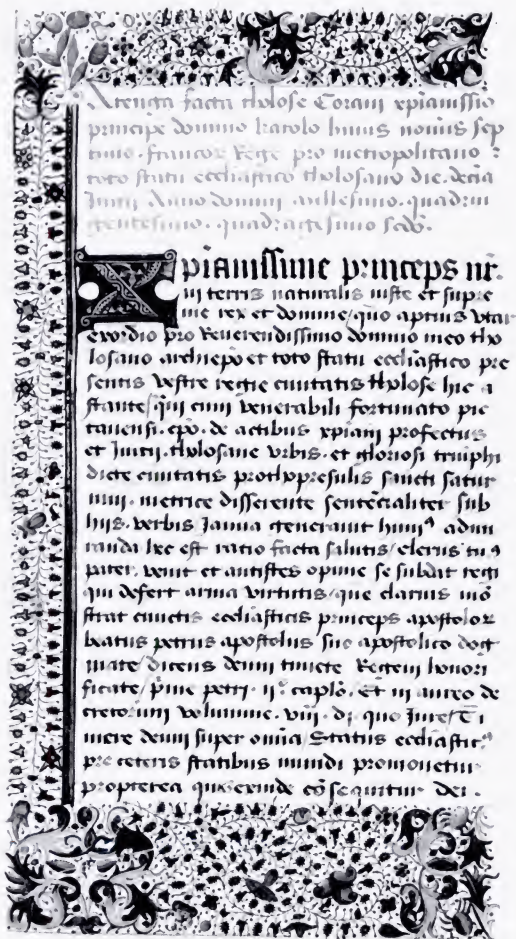 Arenga facta tholose Coram xpianissio
principe domino karolo huius nominis sep
timo. francor Rege pro metropolitano et
toto statu ecclīastico tholosano die. decia
Junii Anno domini millesimo. quadrin
gentesimo. quadragesimo scdo.
Xpianissime princeps nr.
in terris naturalis iuste et supre
me rex et domine / quo aptius vtar
exordio pro Reuerendissimo domino meo tho
losano archiepo et toto statu eccliastico pre
sentis vestre regie ciuitatis tholose hic a
stante / qui cum venerabili fortunato pic
tauensi. epo. de actibus xpiani profectus
et Juicii. tholosane vrbis. et gloriosi triuphi
dicte ciuitatis prothopresulis sancti satur
nini. metrice disserente sentecialiter sub
hiis. verbis Janua generauit humiꝰ admi
randa hec est ratio facta salutis / clerus tuꝰ
pater. venit et antistes opime se subdit regi
qui defert arma virtutis / que clarius mō
strat cunctis eccliasticis princeps apostolor
beatus petrus apostolus suo apostolico dog
mate / dicens deum timete Regem honori
ficate / prime petri. ii. caplo. Et in aureo de
cretorum volumine. viii. di. quo Jure / Ti
mere deum super omia / Status eccliasticꝰ
pre ceteris statibus mundi promouetur
propterea que exinde cōsequitur dei.